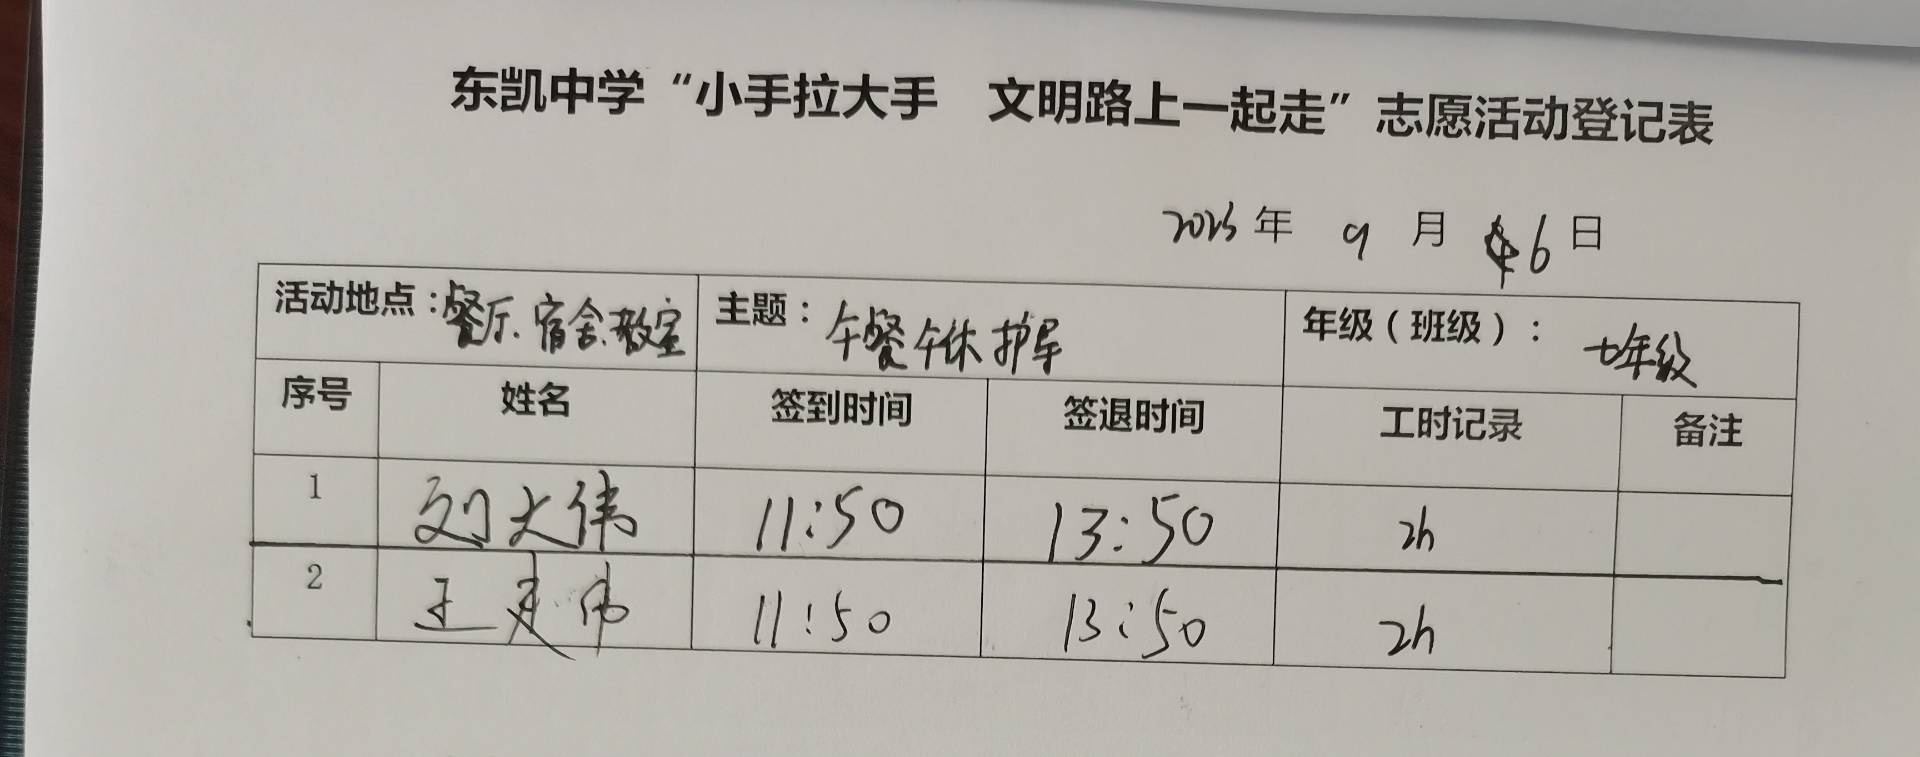 东凯中学“小手拉大手 文明路上一起走”志愿活动登记表
2023年 9 月 6 日
活动地点：餐厅、宿舍、教室 主题：午餐午休护导 年级（班级）：七年级
序号 姓名 签到时间 签退时间 工时记录 备注
1 刘大伟 11:50 13:50 2h
2 王建伟 11:50 13:50 2h